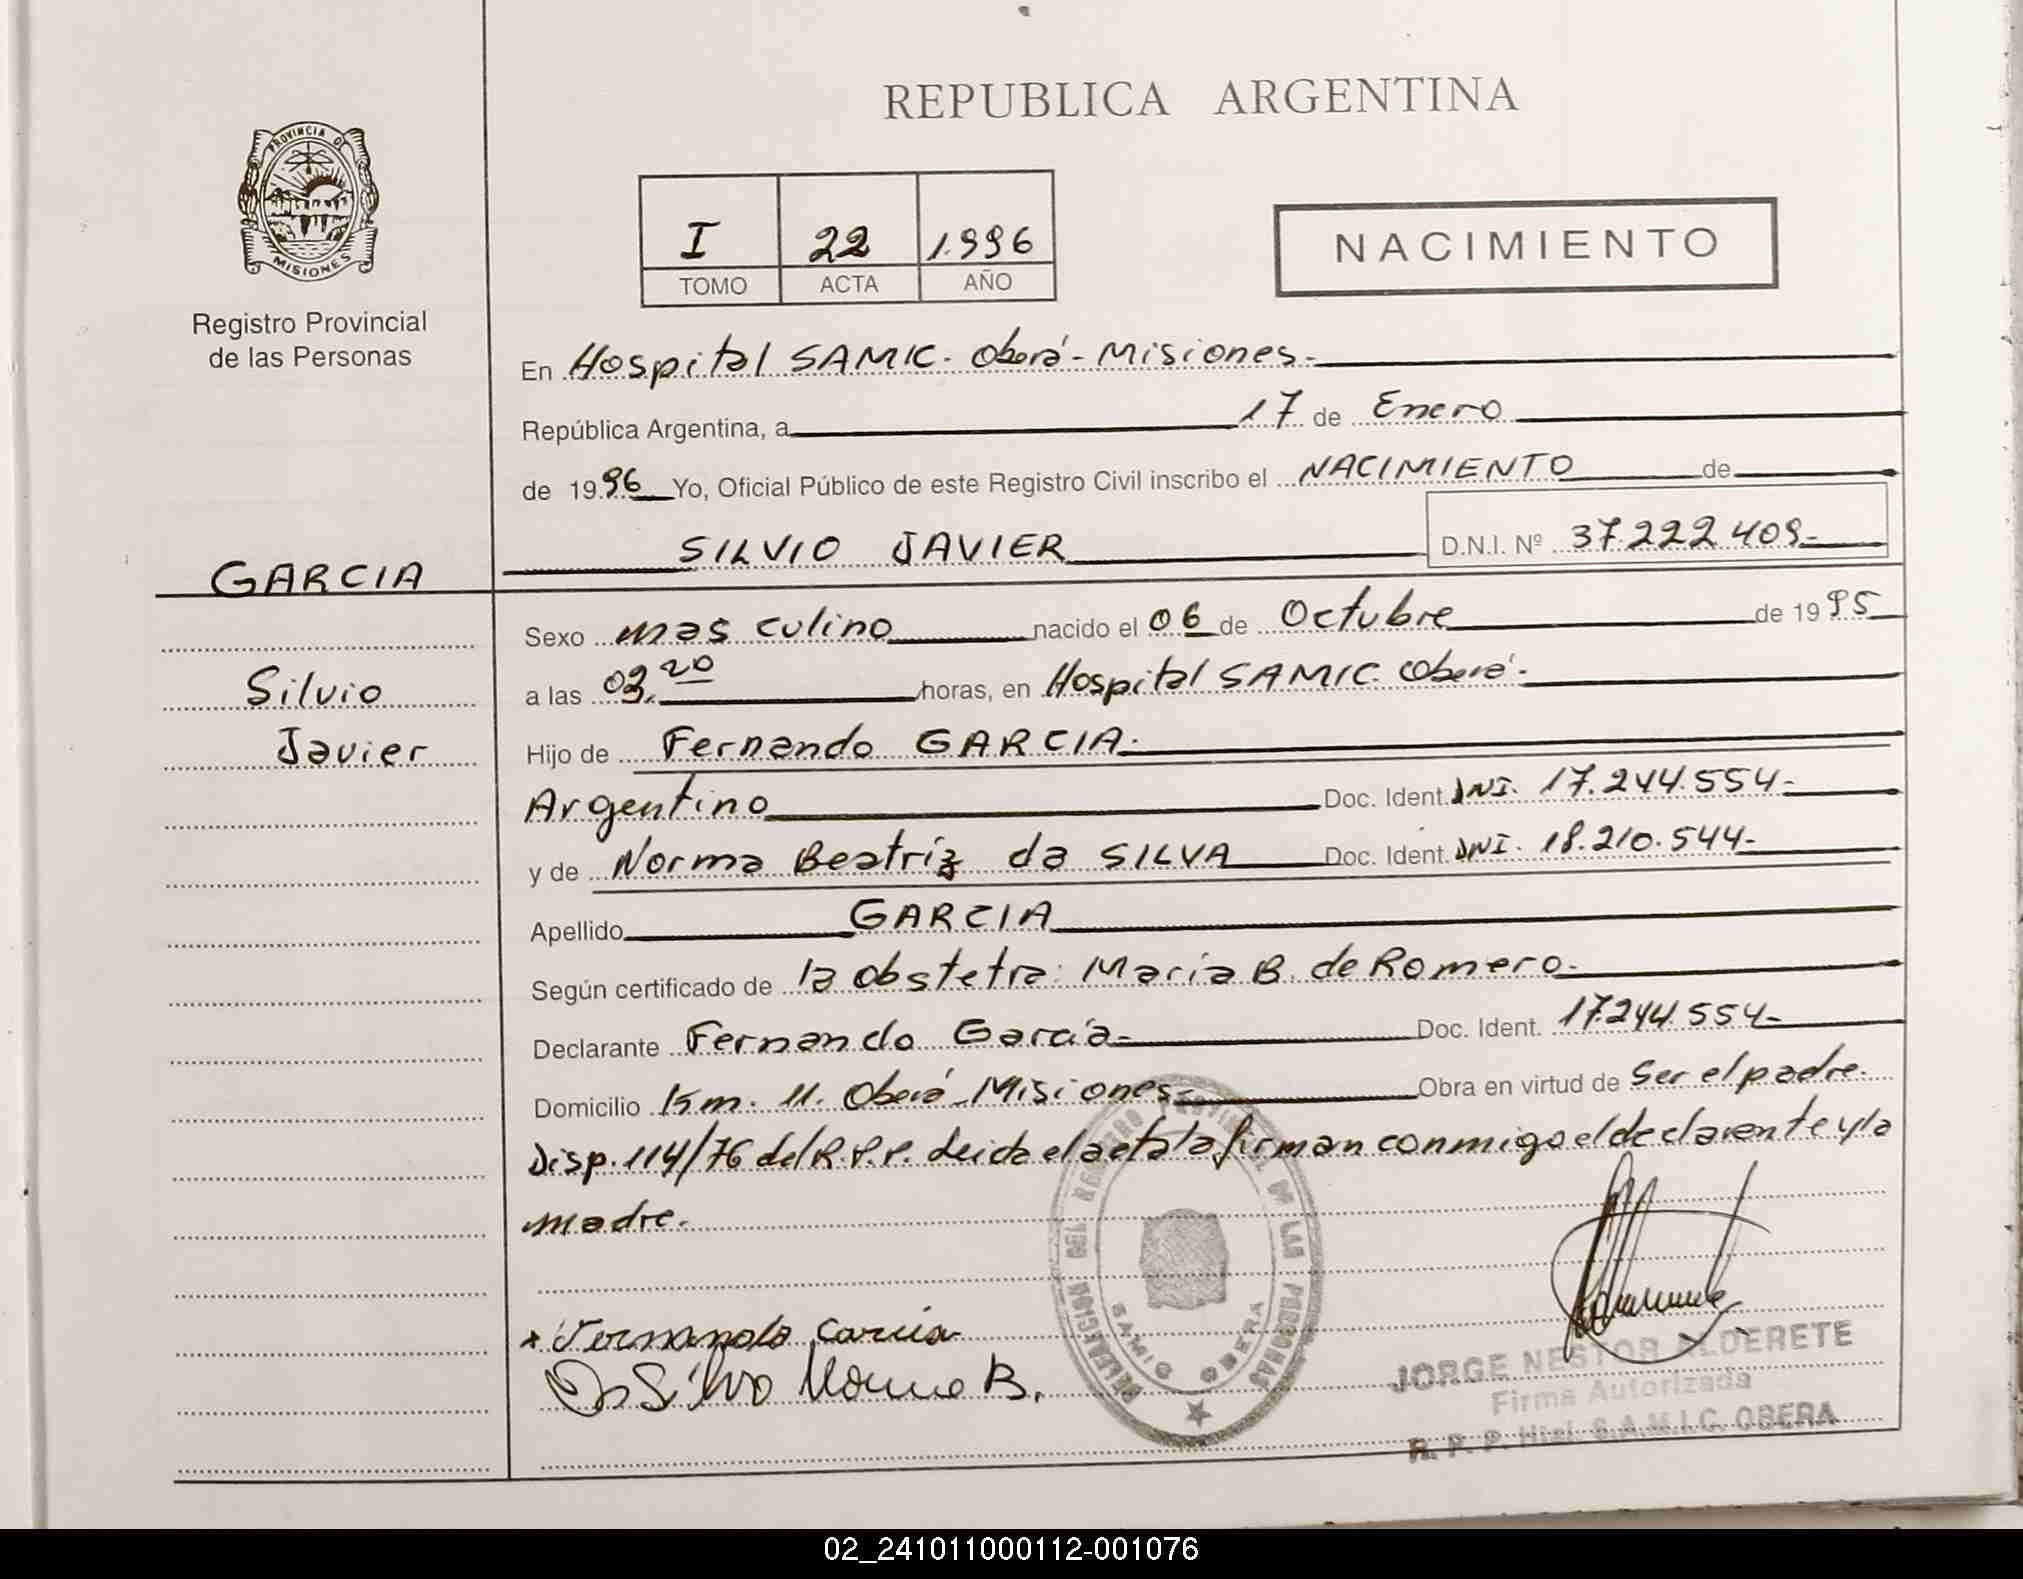 REPUBLICA ARGENTINA
PROVINCIA DE
MISIONES
Registro Provincial
de las Personas
I 22 1.996
TOMO ACTA AÑO
NACIMIENTO
En Hospital SAMIC. Oberá - Misiones.
República Argentina, a 17 de Enero
de 1996 Yo, Oficial Público de este Registro Civil inscribo el NACIMIENTO de
SILVIO JAVIER D.N.I. Nº 37.222.409-
GARCIA
Sexo masculino nacido el 06 de Octubre de 1995
Silvio
a las 03.20 horas, en Hospital SAMIC. Oberá.
Javier
Hijo de Fernando GARCIA.
Argentino Doc. Ident. DNI. 17.244.554-
y de Norma Beatriz da SILVA Doc. Ident. DNI. 18.210.544-
Apellido GARCIA
Según certificado de la obstetra: Maria B. de Romero.
Declarante Fernando García Doc. Ident. 17.244.554-
Domicilio Km. 11. Oberá - Misiones Obra en virtud de Ser el padre.
Disp. 114/76 del R.P.P. Leida el acta la firman conmigo el declarante y la
madre.
DELEGACION DEL REGISTRO PROVINCIAL DE LAS PERSONAS
SAMIC OBERA
Fernando Garcia
Da Silva Norma B.
JORGE NESTOR ALDERETE
Firma Autorizada
R. P. P. Htal. S.A.M.I.C. OBERA
02_241011000112-001076